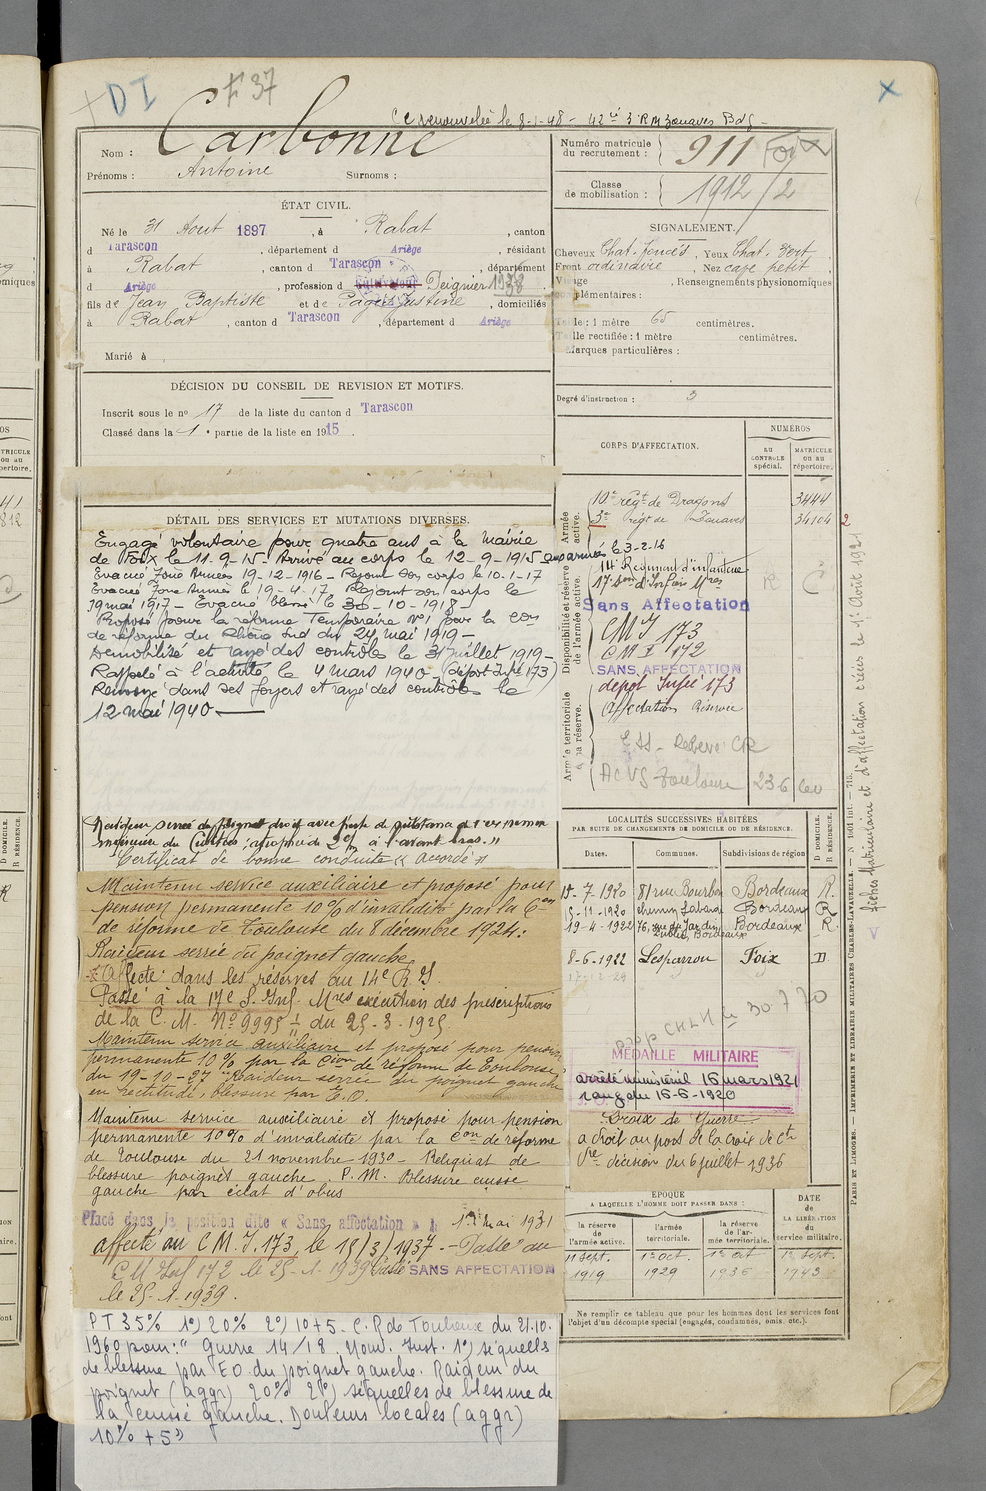 DI F 37
Cc renouvelée le 8-1-48 - 42 3 RM Zouaves
Nom : Carbonne
Prénoms : Antoine Surnoms :
ÉTAT CIVIL.
Né le 31 Aout 1897, à Rabat, canton
d Tarascon, département d Ariège, résidant
à Rabat, canton d Tarascon, département
d Ariège, profession d Cultivateur Peignier 1938.
fils de Jean Baptiste et de Pagès Justine, domiciliés
à Rabat, canton d Tarascon, département d Ariège
Marié à
DÉCISION DU CONSEIL DE REVISION ET MOTIFS.
Inscrit sous le nº 17 de la liste du canton d Tarascon
Classé dans la 1e partie de la liste en 1915.
DÉTAIL DES SERVICES ET MUTATIONS DIVERSES.
Engagé volontaire pour quatre ans à la mairie
de Foix le 11.9.15. Arrivé au corps le 12-9-1915 aux armées le 3-2-16
Evacué Zone Armées 19-12-1916 - Rejoint son corps le 10-1-17
Evacué Zone Armées le 19-4-17. Rejoint son corps le
19 mai 1917 - Evacué blessé le 30-10-1918
Proposé pour la réforme Temporaire Nº 1 par la Con
de réforme du Rhône Sud du 24 mai 1919 -
Démobilisé et rayé des contrôles le 31 juillet 1919 -
Rappelé à l'activité le 4 mars 1940 - (dépôt Infie 173)
Renvoyé dans ses foyers et rayé des contrôles le
12 mai 1940
Raideur serrée du poignet droit avec perte de substance de l'extrémité
inférieure du Cubitus; atrophie de 2 c/m à l'avant bras. »
Certificat de bonne conduite « accordé »
Maintenu service auxiliaire et proposé pour
pension permanente 10% d'invalidité par la Con
de réforme de Toulouse du 8 décembre 1924:
Raideur serrée du poignet gauche
Affecté dans les réserves au 14e R.I.
Passé à la 17e S. Inf. Mres exécution des prescriptions
de la C.M. Nº 9995 1/1 du 25-3-1925
Maintenu service auxiliaire et proposé pour pension
permanente 10% par la Cion de réforme de Toulouse
du 19-10-27 "Raideur serrée du poignet gauche
en rectitude, blessure par E.O.
Maintenu service auxiliaire et proposé pour pension
permanente 10% d'invalidité par la Con de réforme
de Toulouse du 21 novembre 1930 - Reliquat de
blessure poignet gauche. P.M. Blessure cuisse
gauche par éclat d'obus
Placé dans la position dite « Sans affectation » le 1er Mai 1931
affecté au C M. I. 173, le 18/3/1937. - Passé au
C M Inf 172 le 25-1-1939 Passé SANS AFFECTATION
le 25-1-1939.
PT 35% 1º) 20% 2º) 10+5. C.R de Toulouse du 21.10.
1960 pour: " Guerre 14/18. 1º) séquelles
de blessure par EO du poignet gauche. Raideur du
poignet (aggr) 20% 2º) séquelles de blessure de
la cuisse gauche. Douleurs locales (aggr)
10% + 5 »
Numéro matricule
du recrutement : 911 Foix
Classe
de mobilisation : 1912/2
SIGNALEMENT.
Cheveux Chat. foncés, Yeux Chat. vert
Front ordinaire, Nez cave petit
Visage, Renseignements physionomiques
plémentaires :
Taille : 1 mètre 65 centimètres.
Taille rectifiée : 1 mètre centimètres.
Marques particulières :
Degré d'instruction : 3
CORPS D'AFFECTATION.
NUMÉROS
AU CONTRÔLE spécial.
MATRICULE ou au répertoire.
Armée active.
10e régt de Dragons 3444
3e régt de Zouaves 34104 2
Disponibilité et réserve de l'armée active.
14e Régiment d'infanterie R C
17e Son d'Infirs Mres
Sans Affectation
CMI 173
CMI 172
SANS AFFECTATION
dépôt Infie 173
Armée territoriale
sa réserve.
Affectation Réservée
ACVG Toulouse 236
LOCALITÉS SUCCESSIVES HABITÉES
PAR SUITE DE CHANGEMENTS DE DOMICILE OU DE RÉSIDENCE.
D DOMICILE.
R RÉSIDENCE.
Dates. Communes. Subdivisions de région
15-7-1920 81 rue Bourbon Bordeaux R.
15-11-1920 chemin Labarde Bordeaux R
19-4-1922 76, rue du Jardin Public, Bordeaux Bordeaux R.
8-6-1922 Lesparrou Foix D
17-12-29
MÉDAILLE MILITAIRE
arrêté ministériel 16 mars 1921
rang du 16-6-1920
Croix de Guerre
a droit au port de la croix du ctt
décision du 6 juillet 1936
EPOQUE
A LAQUELLE L'HOMME DOIT PASSER DANS :
DATE
de
LA LIBÉRATION
du
service militaire.
la réserve de l'armée active.
l'armée territoriale.
la réserve de l'armée territoriale.
11 sept. 1919
1er oct. 1929
1er oct 1936
1er sept. 1943
Ne remplir ce tableau que pour les hommes dont les services font
l'objet d'un décompte spécial (engagés, condamnés, omis, etc.).
fiches Matriculaire et d'affectation créées le 1er Août 1921
PARIS ET LIMOGES. — IMPRIMERIE ET LIBRAIRIE MILITAIRES CHARLES-LAVAUZELLE. — N 1601 int. — 715.